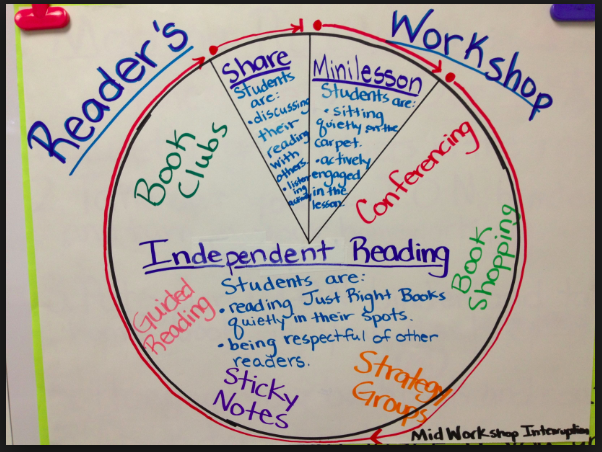 Reader's
Workshop
Share
Students
are:
• discussing
their
reading
with
others.
• listen
ing
actively
Minilesson
Students are:
• sitting
quietly on the
carpet.
• actively
engaged
in the
lesson.
Book
Clubs
Conferencing
Independent Reading
Students are:
• reading Just Right Books
quietly in their spots.
• being respectful of other
readers.
Book
Shopping
Guided
Reading
Sticky
Notes
Strategy
Groups
Mid Workshop Interruption